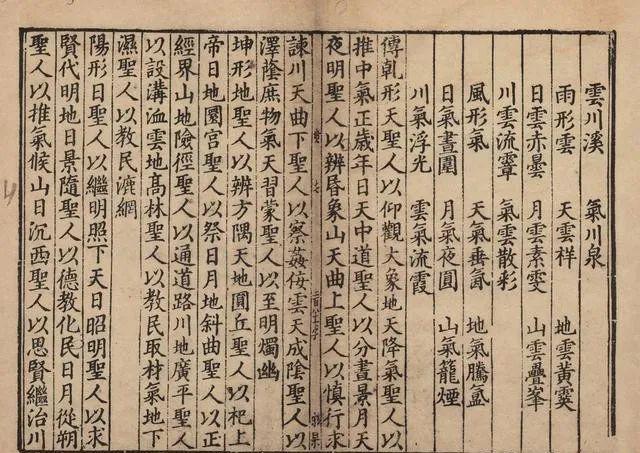 雲川溪　氣川泉
雨形雲　天雲祥　地雲黃霙
日雲赤曇　月雲素雯　山雲疊峯
川雲流　氣雲散彩
風形氣　天氣垂氤　地氣騰氳
日氣晝圍　月氣夜圓　山氣籠煙
川氣浮光　雲氣流霞
傳乹形天聖人以仰觀大象地天降氣聖人以
推中氣正歲年日天中道聖人以分晝景月天
夜明聖人以辨昏象山天曲上聖人以慎行求
諫川天曲下聖人以察姦佞雲天成陰聖人以
澤蔭庶物氣天習蒙聖人以至明燭幽
坤形地聖人以辨方隅天地圓丘聖人以祀上
帝日地圜宮聖人以祭日月地斜曲聖人以正
經界山地險徑聖人以通道路川地廣平聖人
以設溝洫雲地髙林聖人以教民取材氣地下
濕聖人以教民漉網
陽形日聖人以繼明照下天日昭明聖人以求
賢代明地日景隨聖人以德教化民日月從朔
聖人以推氣候山日沉西聖人以思賢繼治川